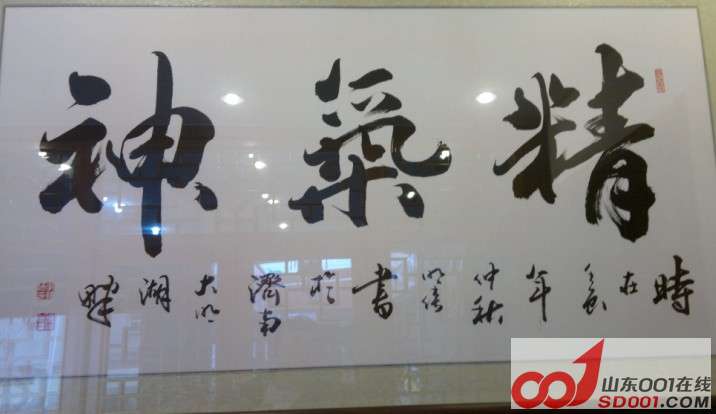 精氣神
時在年仲秋書於濟南大明湖畔
山东001在线
SD001.COM